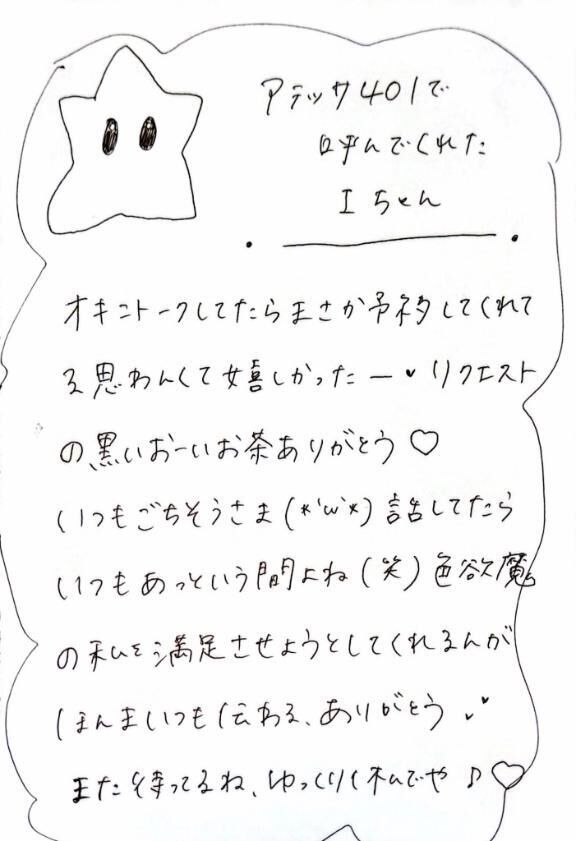 アテッサ401で
呼んでくれた
Iちゃん
オキニトークしてたらまさか予約してくれて
る思わんくて嬉しかったー♥リクエスト
の黒いおーいお茶ありがとう♡
いつもごちそうさま(*'ω'*)話してたら
いつもあっという間よね(笑)色欲魔
の私を満足させようとしてくれるんが
ほんまいつも伝わる、ありがとう
また待ってるね、ゆっくり休んでや♪♡